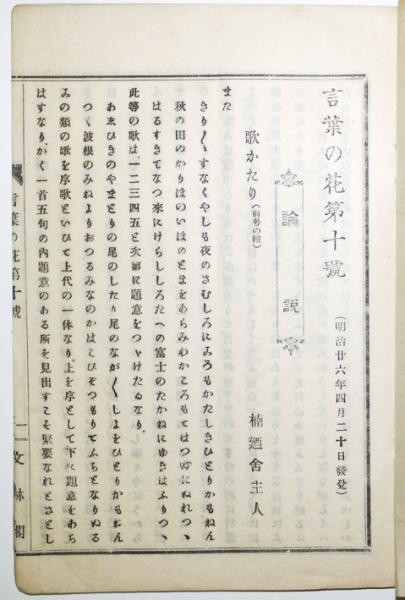 言葉の花第十號
(明治廿六年四月二十日發兌)
論說
歌かたり(前号の續)
楠廼舍主人
また
きり〳〵すなくやしも夜のさむしろにころもかたしきひとりかもねん
秋の田のかりほのいほのとまをあらみわかころもてはつゆにぬれつゝ
はるすきてなつ來にけらししろたへの富士のたかねにゆきはふりつゝ
此等の歌は、一二三四五と次第に題意をつゝけたるなり、
あしひきのやまとりの尾のしたり尾のなが〳〵しよをひとりかもねん
つく波根のみねよりおつるみなのかはこひぞつもりてふちとなりぬる
みの類の歌を序歌といひて上代の一体なり、上を序として下に題意をあら
はすなり、かく一首五句の內題意のある所を見出すこそ緊要なれとさとし
言葉の花第十號
一
文林閣